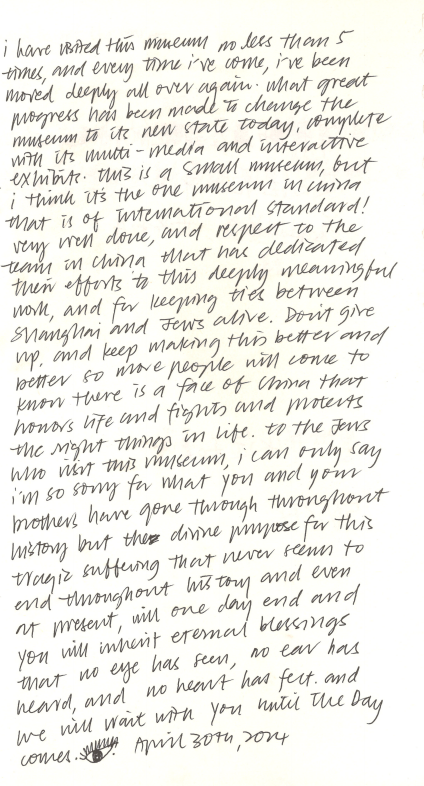 i have visited this museum no less than 5
times, and every time i've come, i've been
moved deeply all over again. what great
progress has been made to change the
museum to its new state today, complete
with its multi-media and interactive
exhibits. this is a small museum, but
i think it's the one museum in china
that is of international standard!
very well done, and respect to the
team in china that has dedicated
their efforts to this deeply meaningful
work, and for keeping ties between
Shanghai and Jews alive. Don't give
up, and keep making this better and
better so more people will come to
know there is a face of China that
honors life and fights and protects
the right things in life. to the Jews
who visit this museum, i can only say
i'm so sorry for what you and your
brothers have gone through throughout
history but the divine purpose for this
tragic suffering that never seems to
end throughout history and even
at present, will one day end and
you will inherit eternal blessings
that no eye has seen, no ear has
heard, and no heart has felt. and
we will wait with you until The Day
comes. April 30th, 2014